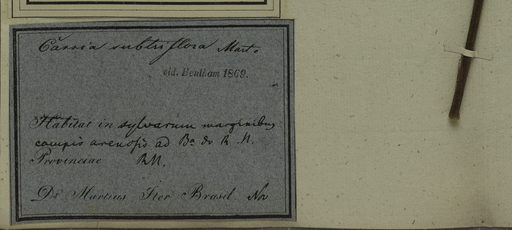 Cassia subtriflora Mart.
vid. Bentham 1869.
Habitat in sylvarum marginibus
campis arenosis ad Bª do R. N.
Provinciae R.N.
Dr Martius Iter Brasil. Nov